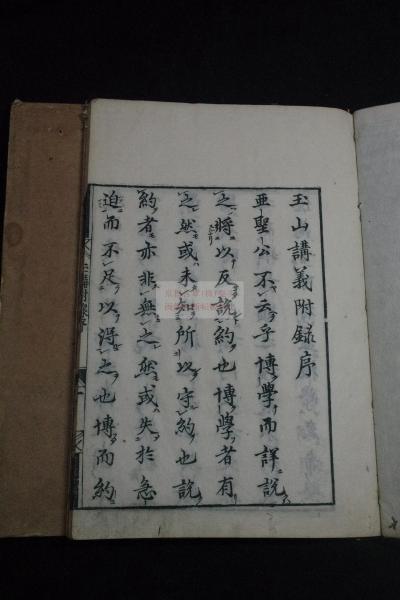 玉山講義附録序
亜聖公不云乎博學而詳説
之將以反説約也博學者有
之然或未知所以守約也説
約者亦非無之然或失於急
迫而不足以得之也博而約